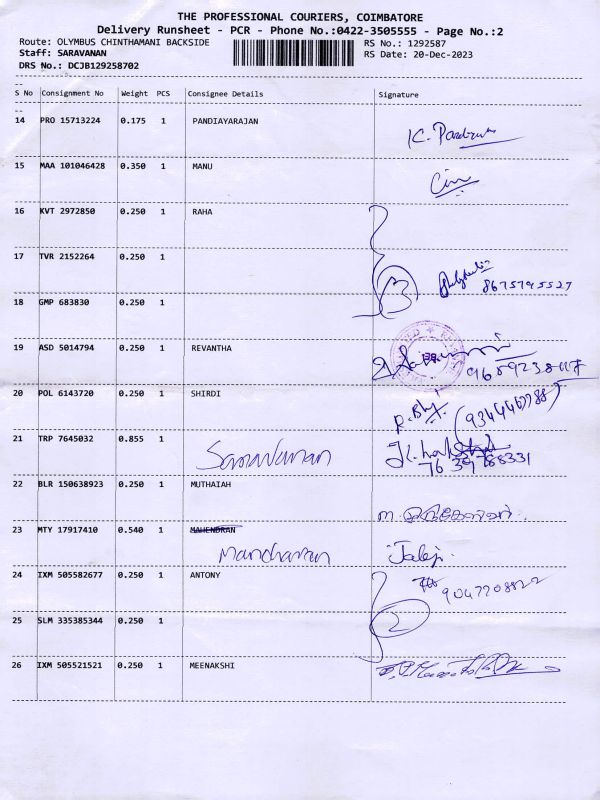 THE PROFESSIONAL COURIERS, COIMBATORE
Delivery Runsheet - PCR - Phone No.:0422-3505555 - Page No.:2
Route: OLYMBUS CHINTHAMANI BACKSIDE
RS No.: 1292587
Staff: SARAVANAN
RS Date: 20-Dec-2023
DRS No.: DCJB129258702
S No Consignment No Weight PCS Consignee Details Signature
14 PRO 15713224 0.175 1 PANDIAYARAJAN
15 MAA 101046428 0.350 1 MANU
16 KVT 2972850 0.250 1 RAHA
17 TVR 2152264 0.250 1
8675795527
18 GMP 683830 0.250 1
19 ASD 5014794 0.250 1 REVANTHA
20 POL 6143720 0.250 1 SHIRDI
21 TRP 7645032 0.855 1 Saravanan
22 BLR 150638923 0.250 1 MUTHAIAH
23 MTY 17917410 0.540 1 MAHENDRAN
24 IXM 505582677 0.250 1 ANTONY
25 SLM 335385344 0.250 1
26 IXM 505521521 0.250 1 MEENAKSHI